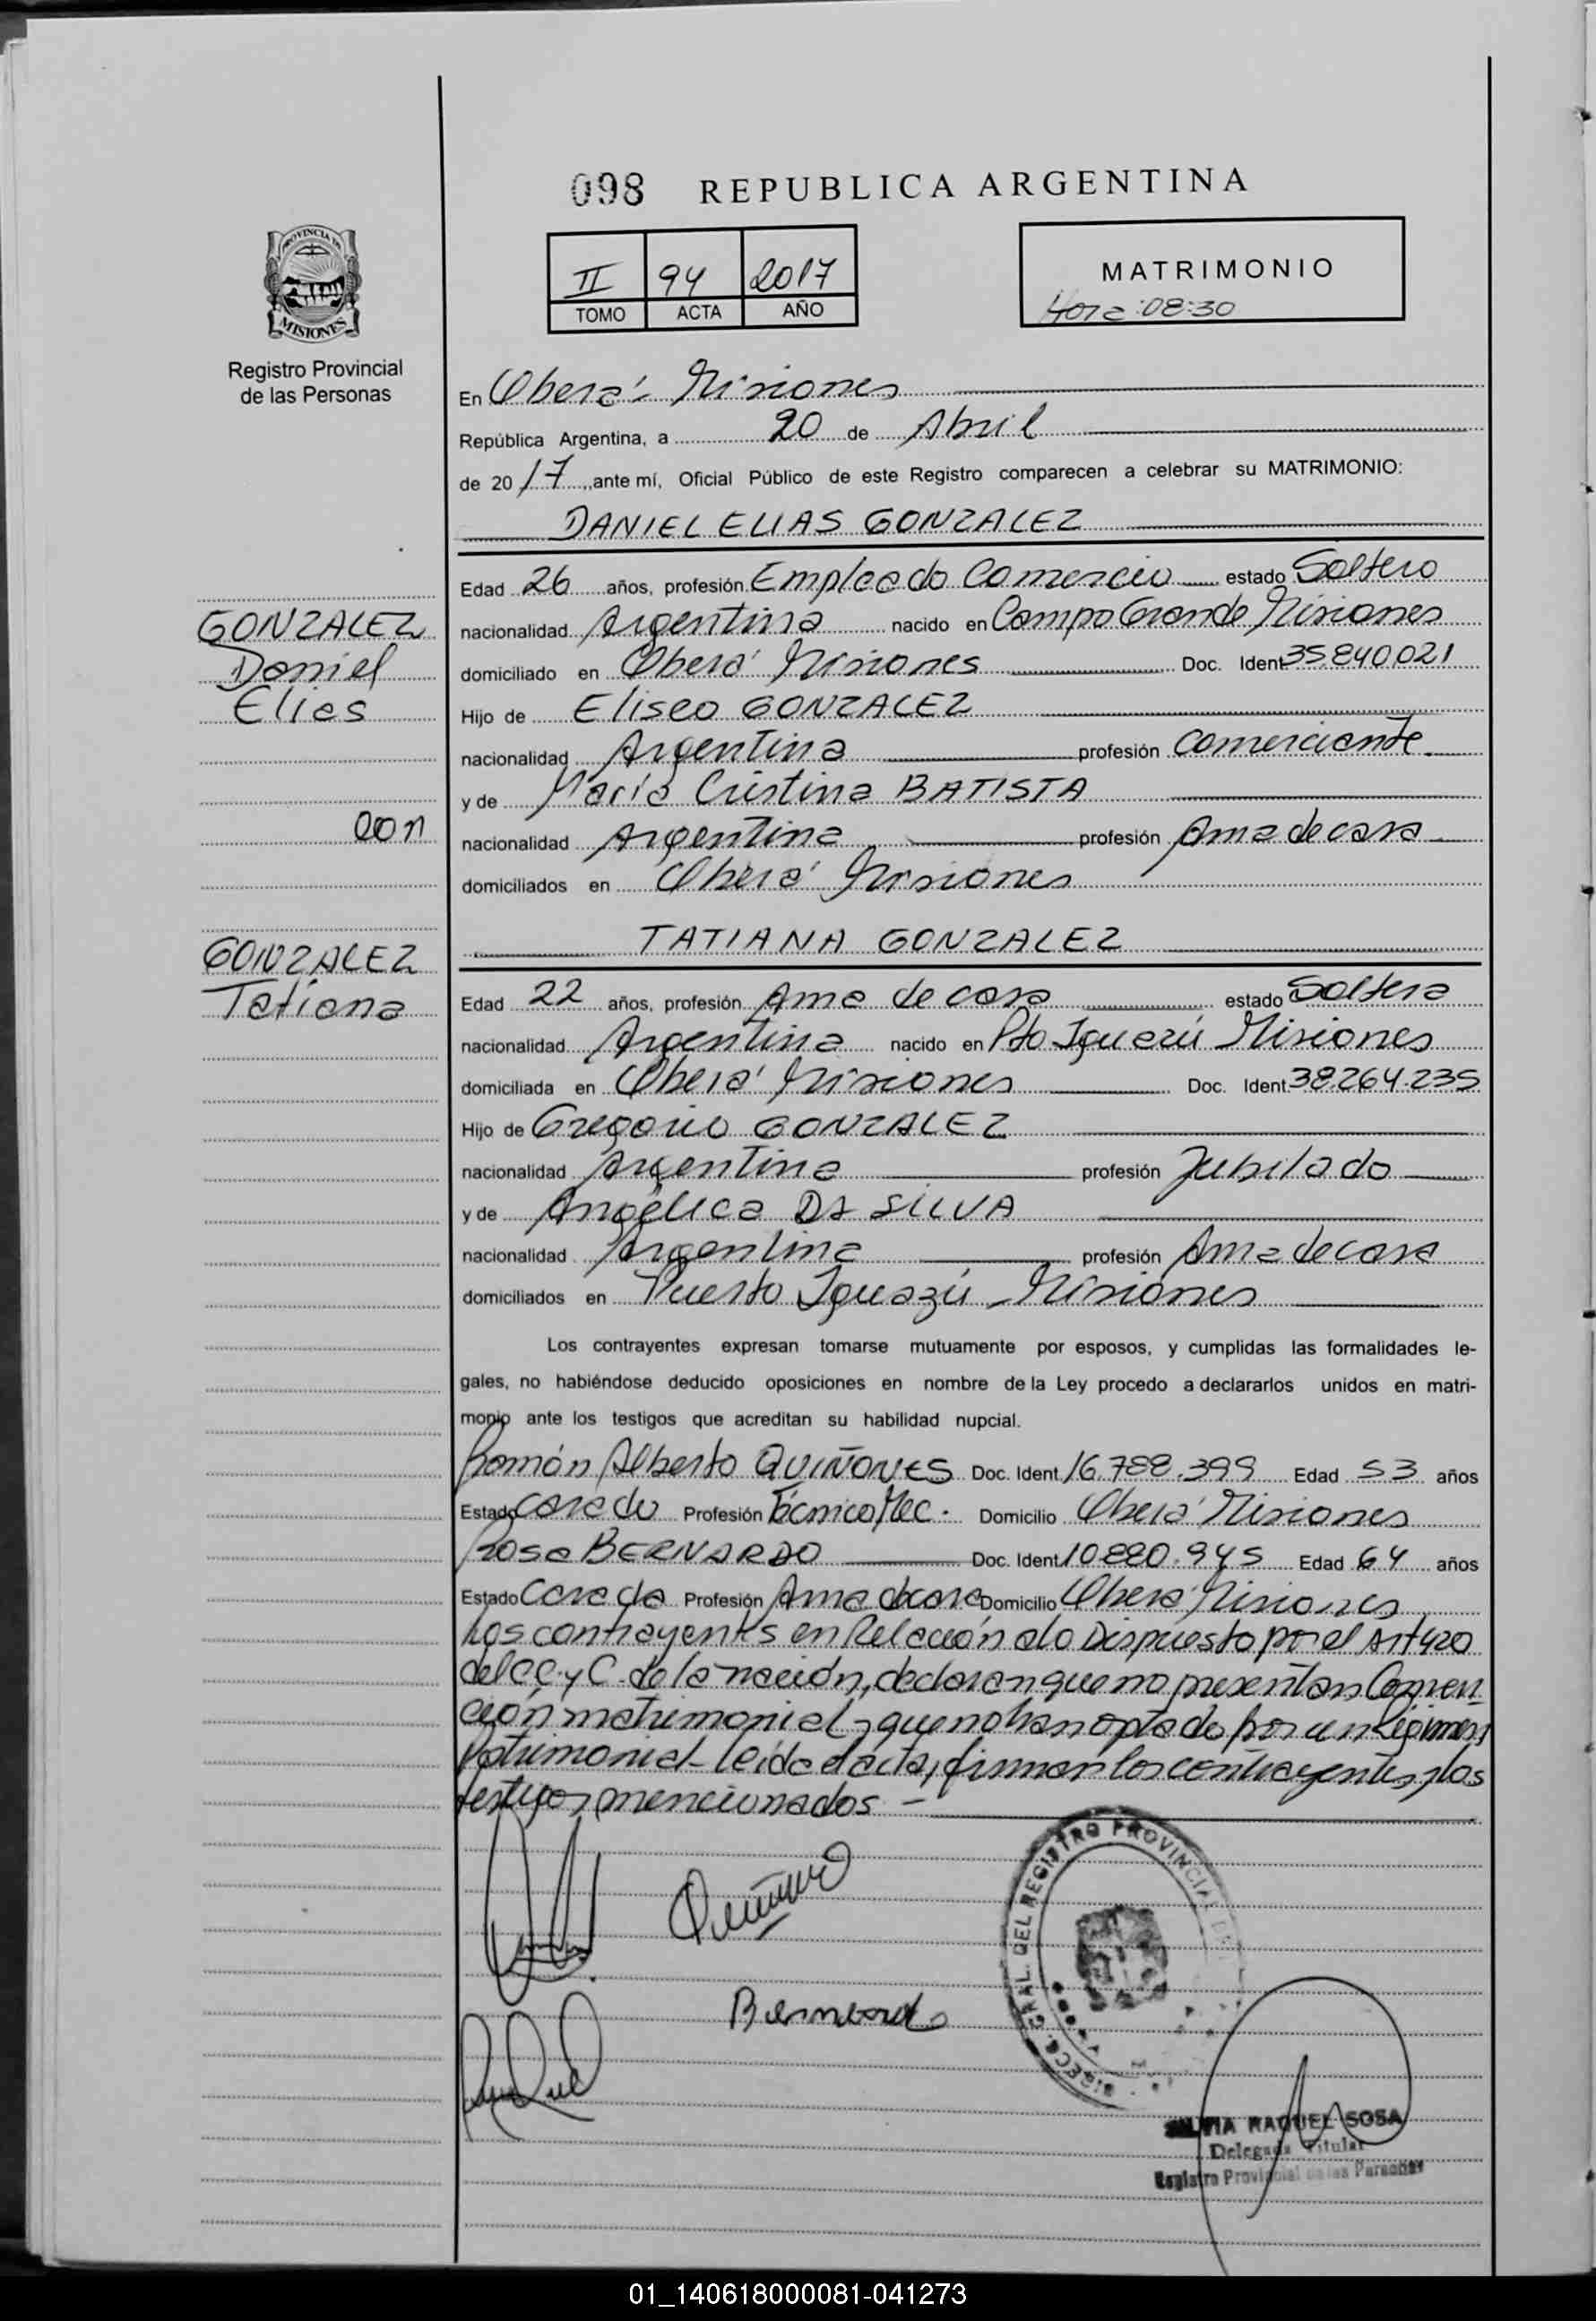 098 REPUBLICA ARGENTINA
PROVINCIA DE
MISIONES
Registro Provincial
de las Personas
II 94 2017
TOMO ACTA AÑO
MATRIMONIO
Hora: 08:30
En Oberá - Misiones
República Argentina, a 20 de Abril
de 20 17 ante mí, Oficial Público de este Registro comparecen a celebrar su MATRIMONIO:
DANIEL ELIAS GONZALEZ
GONZALEZ
Daniel
Elias
con
GONZALEZ
Tatiana
Edad 26 años, profesión Empleado Comercio estado Soltero
nacionalidad Argentina nacido en Campo Grande Misiones
domiciliado en Oberá Misiones Doc. Ident 35.840.021
Hijo de Eliseo GONZALEZ
nacionalidad Argentina profesión Comerciante
y de María Cristina BATISTA
nacionalidad Argentina profesión Ama de casa
domiciliados en Oberá Misiones
TATIANA GONZALEZ
Edad 22 años, profesión Ama de casa estado Soltera
nacionalidad Argentina nacido en Pto Iguazú Misiones
domiciliada en Oberá Misiones Doc. Ident 38.264.235
Hijo de Gregorio GONZALEZ
nacionalidad Argentina profesión Jubilado
y de Angélica DA SILVA
nacionalidad Argentina profesión Ama de casa
domiciliados en Puerto Iguazú - Misiones
Los contrayentes expresan tomarse mutuamente por esposos, y cumplidas las formalidades le-
gales, no habiéndose deducido oposiciones en nombre de la Ley procedo a declararlos unidos en matri-
monio ante los testigos que acreditan su habilidad nupcial.
Ramón Alberto QUIÑONES Doc. Ident 16.788.399 Edad 53 años
Estado Casado Profesión Técnico Mec. Domicilio Oberá Misiones
Rosa BERNARDO Doc. Ident 10.880.945 Edad 64 años
Estado Casada Profesión Ama de casa Domicilio Oberá Misiones,
Los contrayentes en Relación a lo Dispuesto por el Art 420
del C.C. y C. de la nación, declaran que no presentan Conven
ción matrimonial y que no han optado por un Régimen
Patrimonial - Leída el acta, firman los contrayentes y los
testigos mencionados -
Bernardo
GRAL. DEL REGISTRO PROVINCIAL DE
SILVIA RAQUEL SOSA
Delegada Titular
Registro Provincial de las Personas
01_140618000081-041273